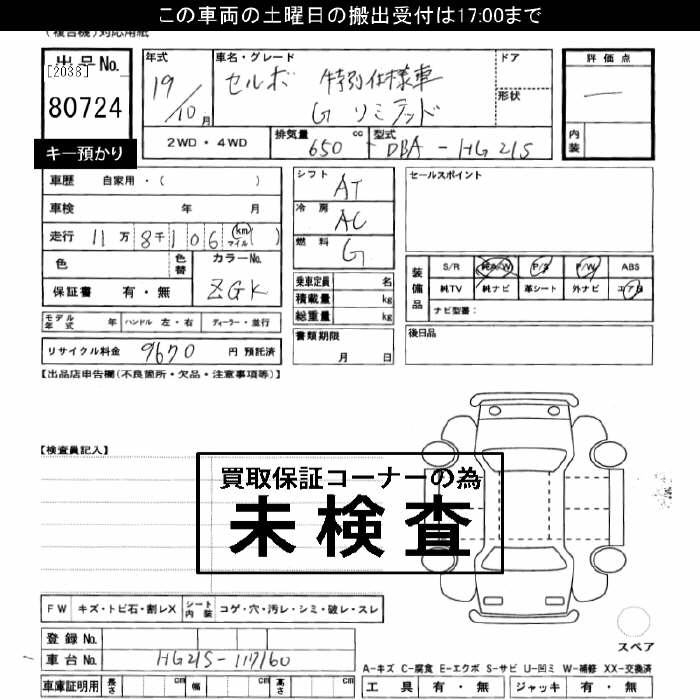 この車両の土曜日の搬出受付は17:00まで
(複合機)対応用紙
出品No.
[2038]
80724
キー預かり
年式 車名・グレード ドア
19/10月 セルボ 特別仕様車
G リミテッド
形状
2WD・4WD 排気量 650 cc 型式 DBA-HG21S
評価点
—
内装
車歴 自家用・( )
車検 年 月
走行 11万8千106 km マイル ( )
色 色替 カラーNo.
ZGK
保証書 有・無
モデル年式 年 ハンドル 左・右 ディーラー・並行
リサイクル料金 9670 円 預託済
シフト AT
冷房 AC
燃料 G
乗車定員 名
積載量 kg
総重量 kg
書類期限
月 日
セールスポイント
装備品
S/R 純A/W P/S P/W ABS
純TV 純ナビ 革シート 外ナビ エアB
ナビ型番:
後日品
【出品店申告欄(不良箇所・欠品・注意事項等)】
【検査員記入】
買取保証コーナーの為
未検査
FW キズ・トビ石・割レX シート内装 コゲ・穴・汚レ・シミ・破レ・スレ
登録No.
車台No. HG21S-117160
車庫証明用 長さ cm 幅 cm 高さ cm
スペア
A-キズ C-腐食 E-エクボ S-サビ U-凹ミ W-補修 XX-交換済
工具 有・無 ジャッキ 有・無